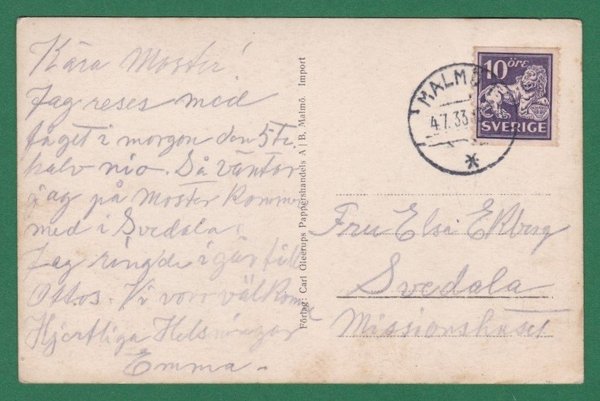 Kära Moster!
Jag reser med
tåget i morgon den 5te
halv nio. Så väntar
jag på Moster kommer
med i Svedala.
Jag ringde i går till
Ottos. Vi voro välkomna
Hjertliga Helsningar
Emma.
Förlag: Carl Gleerups Pappershandels A|B, Malmö. Import
MALMÖ
4.7.33
10 öre
SVERIGE
Fru Elsa Ekberg
Svedala
Missionshuset